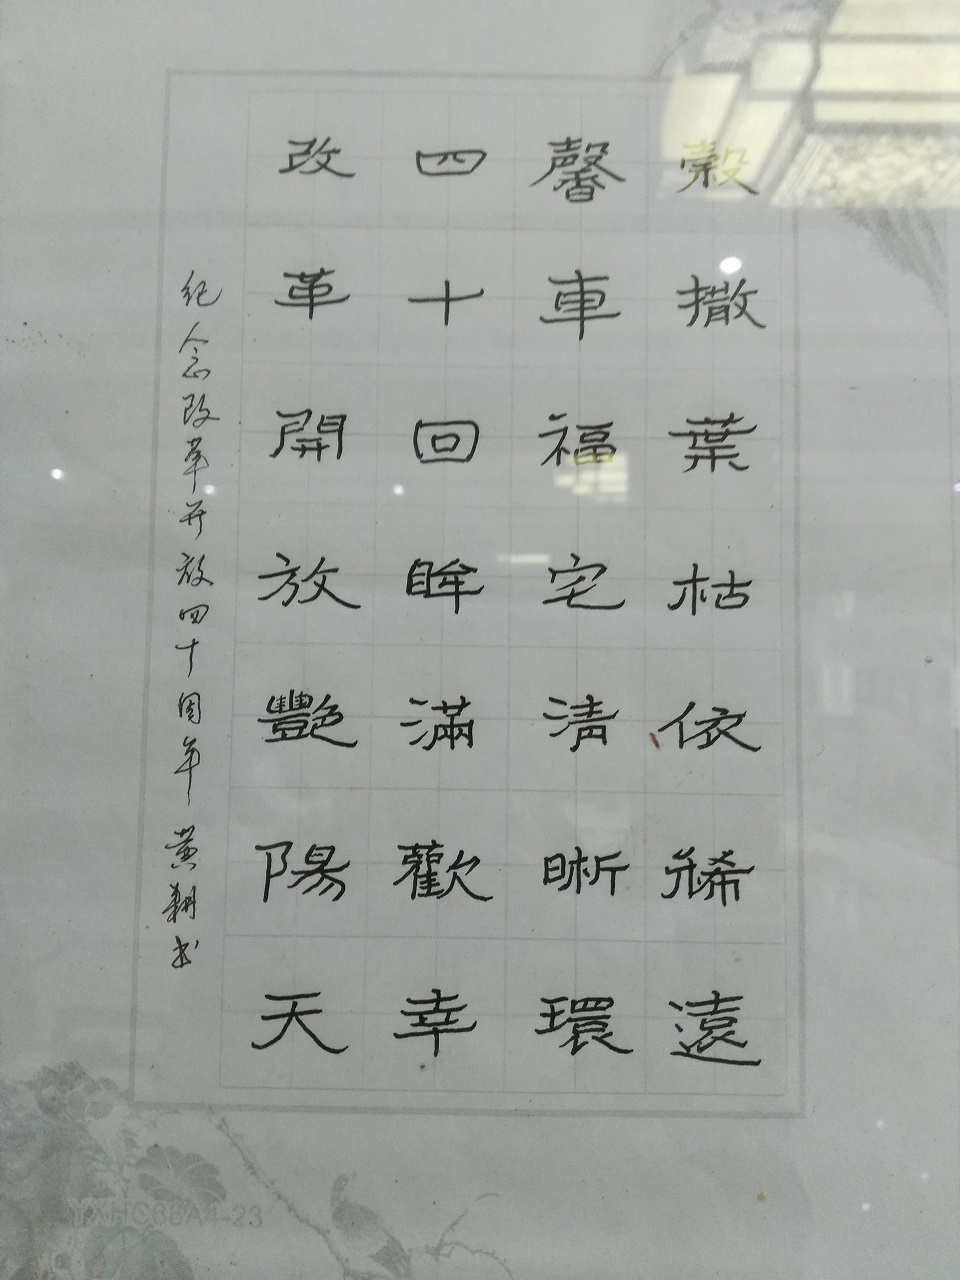 穀撒葉枯依稀遠
馨車福宅清晰環
四十回眸滿歡幸
改革開放艷陽天
纪念改革开放四十周年 黄翔书
YXHC68A4-23